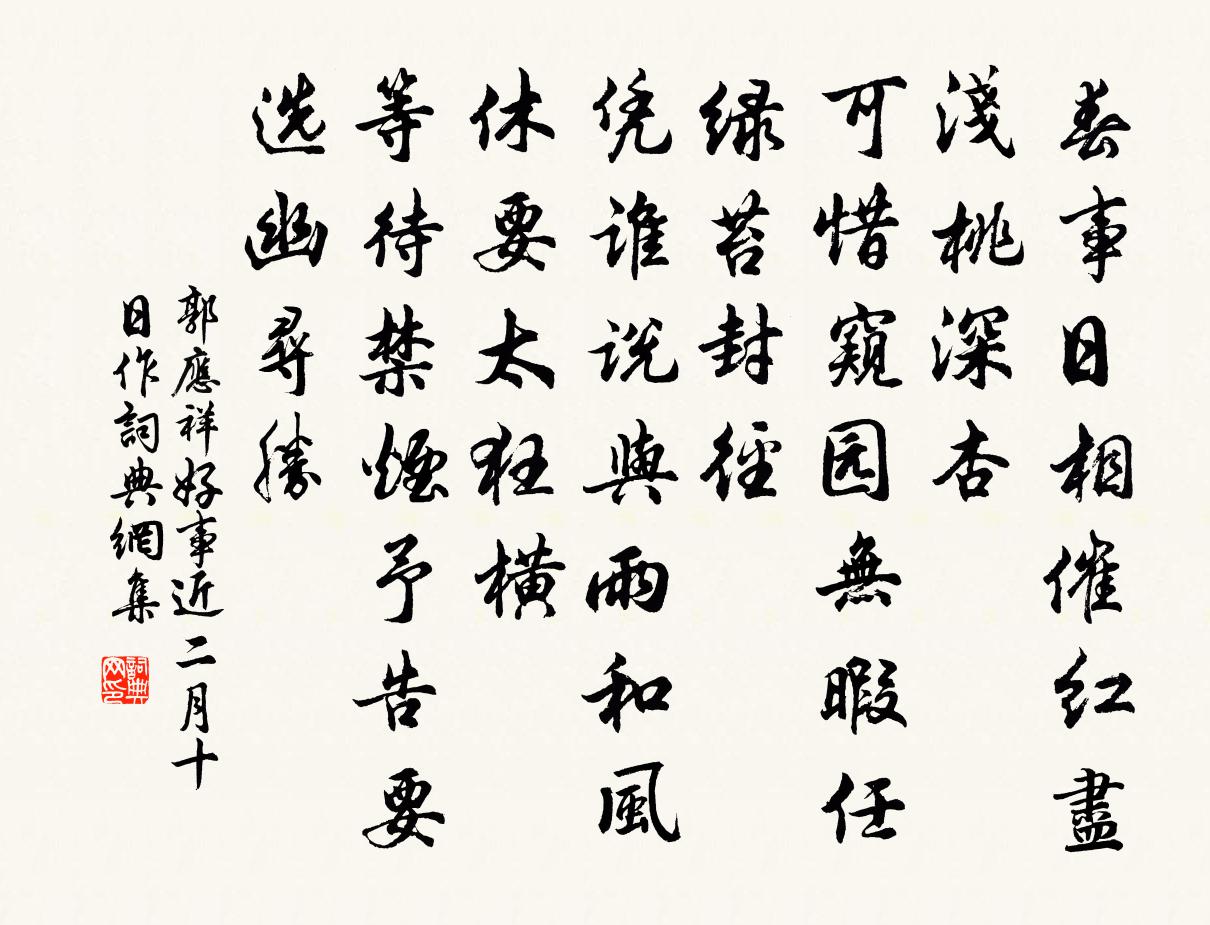 春事日相催红盡
淺桃深杏
可惜窺园無暇任
绿苔封徑
凭谁说與雨和風
休要太狂横
等待禁煙予告要
选幽尋勝
郭應祥好事近二月十
日作詞典網集
詞典网印